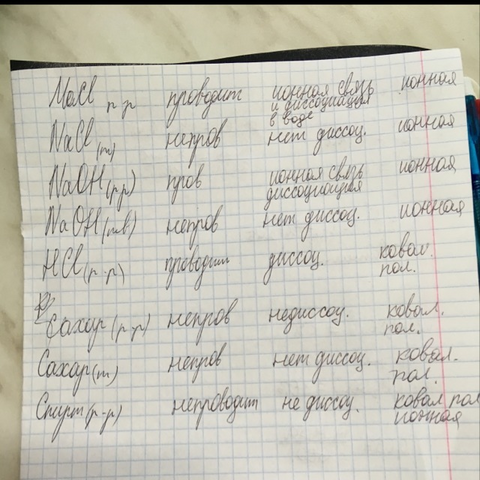 NaCl р-р проводит ионная связь и диссоциация в воде ионная
NaCl (т) непров нет диссоц. ионная
NaOH (р-р) пров ионная связь диссоциация ионная
NaOH (тв) непров нет диссоц. ионная
HCl (р-р) проводит диссоц. ковал. пол.
Сахар (р-р) непров недиссоц. ковал. пол.
Сахар (т) непров нет диссоц. ковал. пол.
Спирт (р-р) непроводит не диссоц. ковал пол ионная